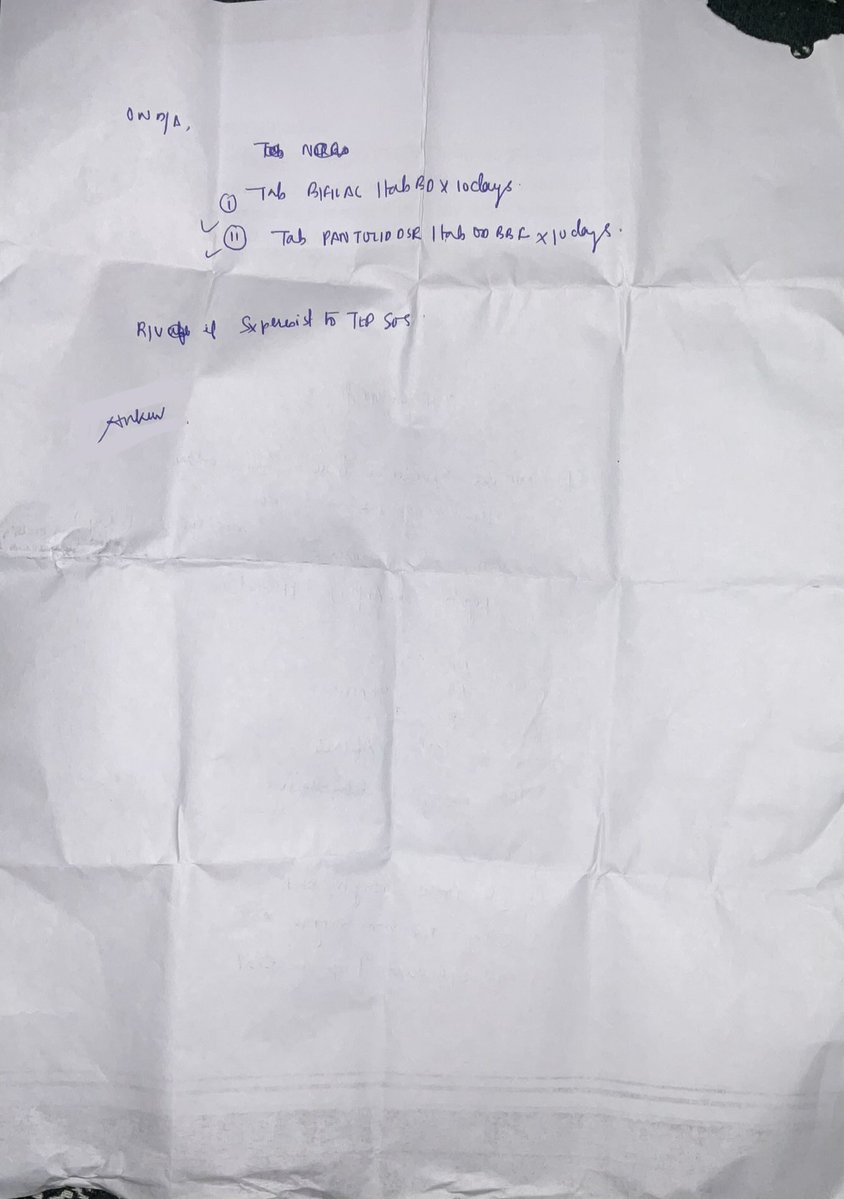 ON D/A,
Tab
(I) Tab BIFILAC 1tab BD x 10days.
(II) Tab PANTOZID DSR 1tab OD BBF x 10days.
R/V if Sx persist to SOS.
Ankur